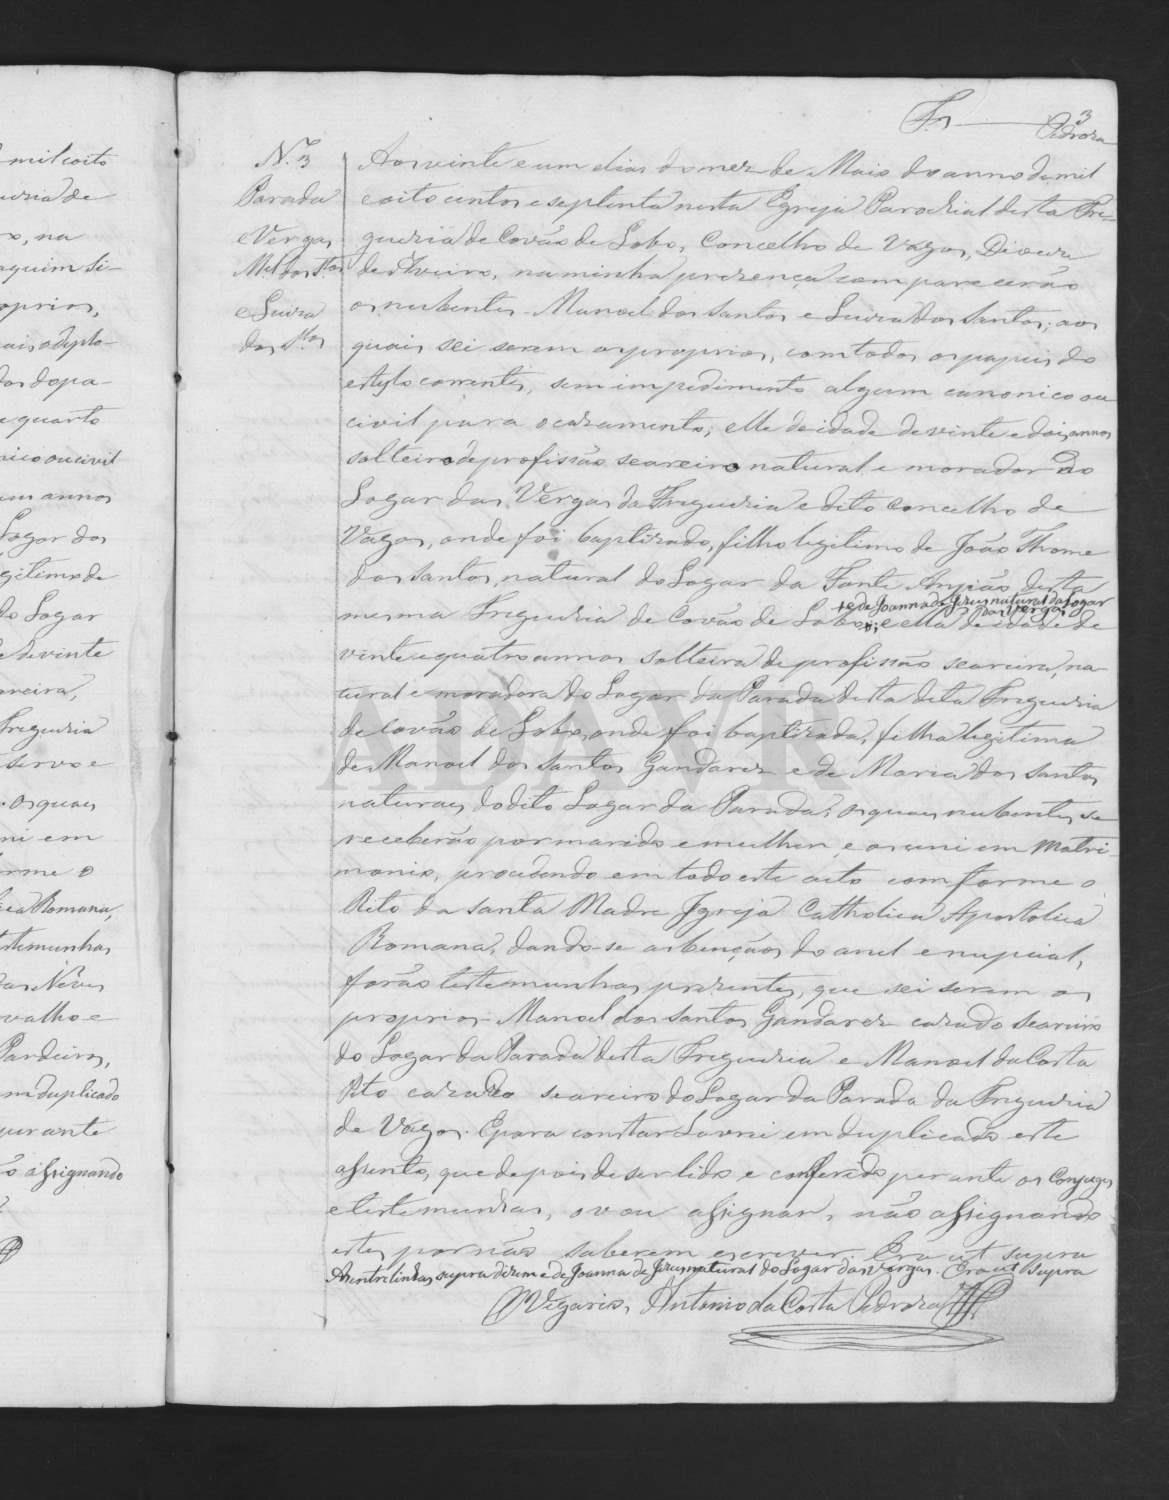 mil coito
N.º 3
Parada
e Vergas
Mel dos Stos
e Luiza
dos Stos
Fs 3
Pedroza
Aos vinte e um dias do mez de Maio do anno de mil
e oito centos e septenta nesta Egreja Parochial desta Fre-
guezia de Covão de Lobo, Concelho de Vagos, Diocese
de Aveiro, na minha prezença comparecerão
os nubentes Manoel dos Santos e Luiza dos Santos; aos
quais sei serem os proprios, com todos os papeis do
estylo correntes, sem impedimento algum canonico ou
civil para o cazamento; elle de idade de vinte e dois annos
solteiro de profissão seareiro natural e morador do
Logar das Vergas da Freguezia e dito Concelho de
Vagos, onde foi baptizado, filho legitimo de João Thome
dos Santos, natural do Logar da Fonte Angião desta
+ e de Joanna de Jesus natural do Logar
das Vergas
mesma Freguezia de Covão de Lobo +; e ella de idade de
vinte e quatro annos solteira de profissão seareira, na-
tural e moradora do Logar da Parada desta dita Freguezia
de Covão de Lobo, onde foi baptizada, filha legitima
de Manoel dos Santos Gandarez e de Maria dos Santos
naturaes do dito Logar da Parada; os quaes nubentes se
receberão por marido e mulher, e os uni em Matri-
monio, procedendo em todo este acto comforme o
Rito da Santa Madre Igreja Catholica Apostolica
Romana, dando-se as bençãos do anel e nupcial,
forão testemunhas prezentes, que sei serem os
proprios Manoel dos Santos Gandarez cazado seareiro
do Logar da Parada desta Freguezia e Manoel da Costa
cazado seareiro do Logar da Parada da Freguezia
de Vagos. E para constar lavrei em duplicado este
assento, que depois de ser lido e conferido perante os Conjuges
e testemunhas, o vou assignar, não assignando
estes por não saberem escrever. Era ut supra
As entrelinhas supra dizem e de Joanna de Jesus natural do Logar das Vergas. Era ut supra
O Vigario, Antonio da Costa Pedroza